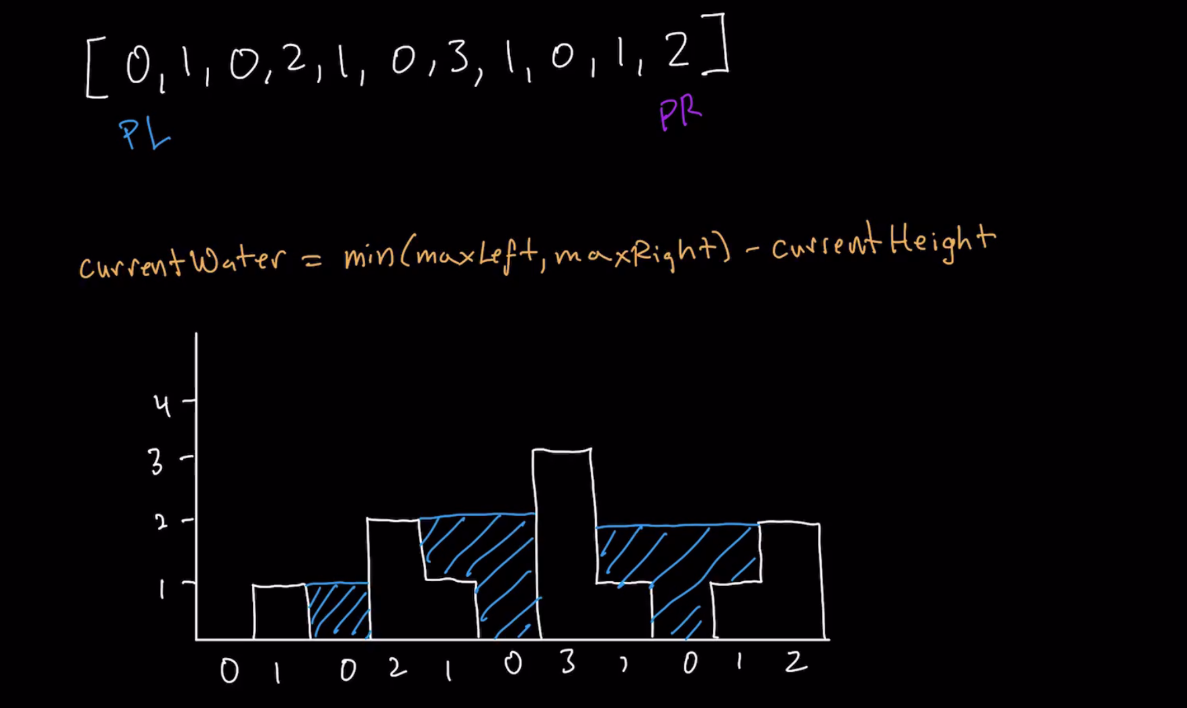 [0, 1, 0, 2, 1, 0, 3, 1, 0, 1, 2]
PL PR
currentWater = min(maxLeft, maxRight) - currentHeight
4
3
2
1
0 1 0 2 1 0 3 1 0 1 2